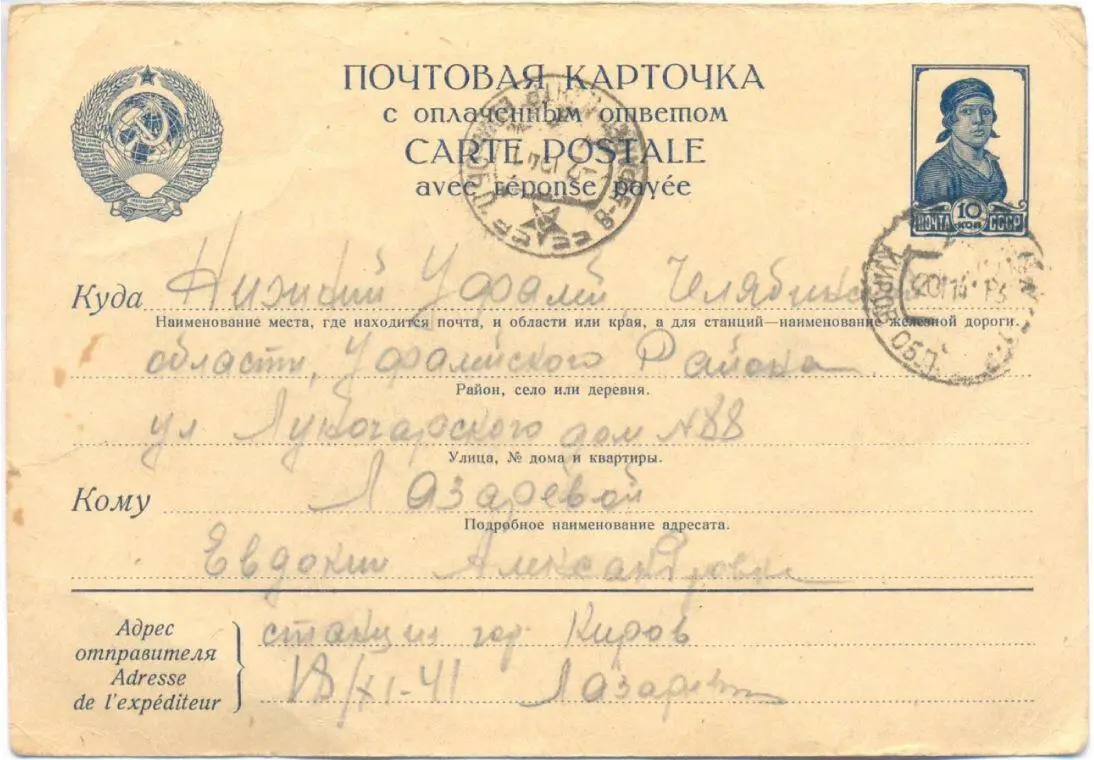 ПОЧТОВАЯ КАРТОЧКА
с оплаченным ответом
CARTE POSTALE
avec réponse payée
ПОЧТА 10 КОП СССР
КИРОВ
Куда Нижний Уфалей Челябинск
Наименование места, где находится почта, и области или края, а для станций—наименование железной дороги.
области, Уфалейского Района
Район, село или деревня.
ул Луначарского дом №88
Улица, № дома и квартиры.
Кому Лазаревой
Подробное наименование адресата.
Евдокии Александровне
Адрес отправителя
Adresse de l'expéditeur
станция гор Киров
18/XI-41 Лазарев